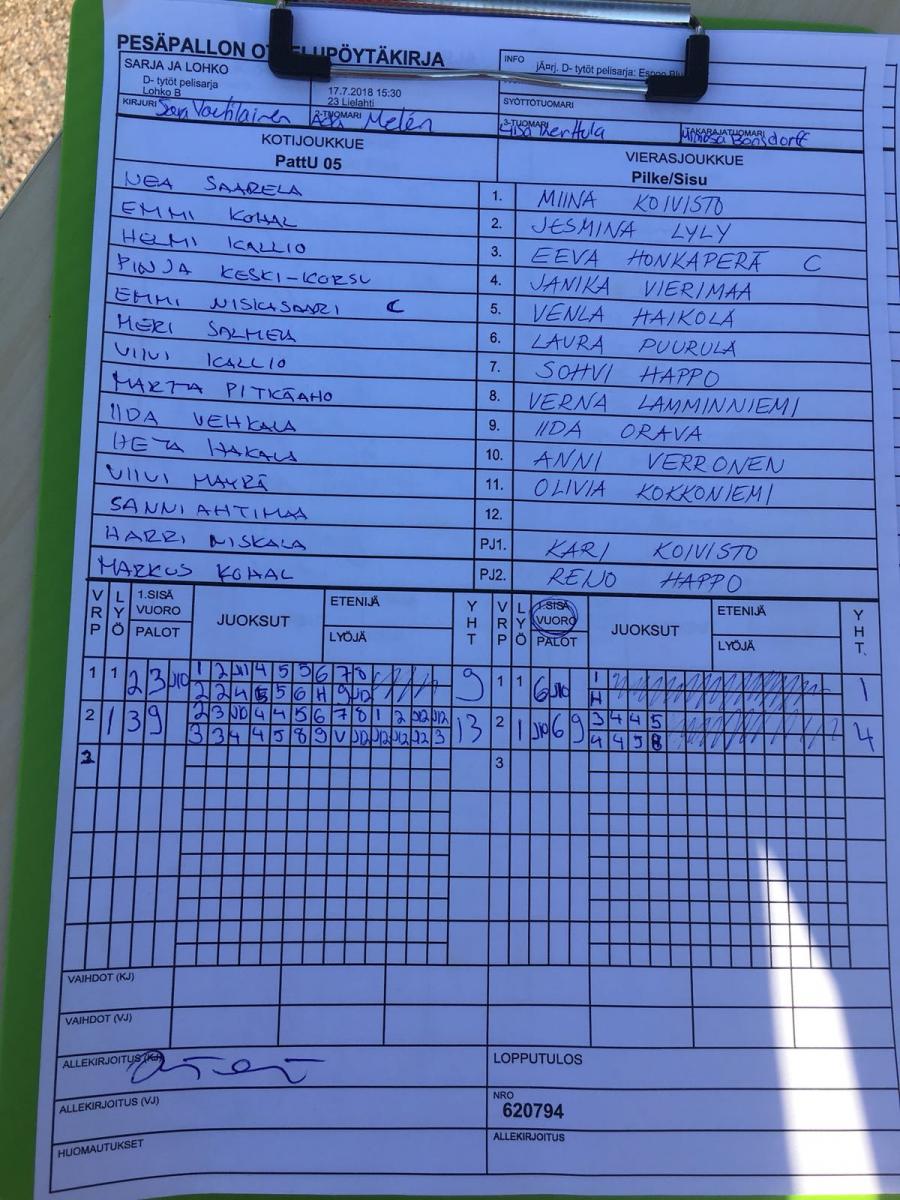 PESÄPALLON OTTELUPÖYTÄKIRJA
SARJA JA LOHKO
D- tytöt pelisarja
Lohko B
17.7.2018 15:30
23 Lielahti
INFO
jÃ¤rj. D- tytöt pelisarja: Espoo Blu
SYÖTTÖTUOMARI
KIRJURI
2-TUOMARI Melén
3-TUOMARI
TAKARAJATUOMARI
KOTIJOUKKUE
PattU 05
VIERASJOUKKUE
Pilke/Sisu
NEA SAARELA 1. MIINA KOIVISTO
EMMI KOHAL 2. JESMINA LYLY
HELMI KALLIO 3. EEVA HONKAPERÄ C
PINJA KESKI-KORSU 4. JANIKA VIERIMAA
EMMI NISKASAARI C 5. VENLA HAIKOLA
MERI SALMELA 6. LAURA PUURULA
VIIVI KALLIO 7. SOHVI HAPPO
MARTTA PITKÄAHO 8. VERNA LAMMINNIEMI
IIDA VEHKALA 9. IIDA ORAVA
HETA HAKALA 10. ANNI VERRONEN
VIIVI MÄYRÄ 11. OLIVIA KOKKONIEMI
SANNI AHTIMAA 12.
HARRI NISKALA PJ1. KARI KOIVISTO
MARKUS KOHAL PJ2. REIJO HAPPO
VRP LYÖ 1.SISÄ VUORO PALOT JUOKSUT ETENIJÄ LYÖJÄ YHT VRP LYÖ 1.SISÄ VUORO PALOT JUOKSUT ETENIJÄ LYÖJÄ YHT.
1 1 2 3 J10 1 2 J11 4 5 5 6 7 8 9 1 1 6 J10 1 1
2 2 4 5 6 H 9 J12 H
2 1 3 9 2 3 J10 4 4 5 6 7 8 1 2 J12 J12 13 2 1 J10 6 9 3 4 4 5 4
3 3 4 4 5 8 9 V J12 J12 J12 J12 3 4 4 5 8
3 3
VAIHDOT (KJ)
VAIHDOT (VJ)
ALLEKIRJOITUS (KJ)
LOPPUTULOS
ALLEKIRJOITUS (VJ)
NRO
620794
HUOMAUTUKSET
ALLEKIRJOITUS